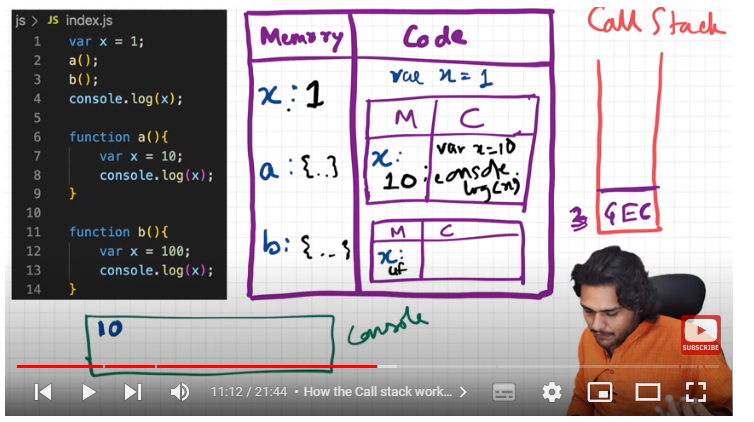 js > JS index.js
1 var x = 1;
2 a();
3 b();
4 console.log(x);
5
6 function a(){
7 var x = 10;
8 console.log(x);
9 }
10
11 function b(){
12 var x = 100;
13 console.log(x);
14 }
Memory
Code
x : 1
a : {..}
b : {...}
var x = 1
M C
x:
10:
var x=10
console.
log(x)
M C
x:
uf
Call Stack
GEC
10
Console
SUBSCRIBE
11:12 / 21:44 • How the Call stack work... >